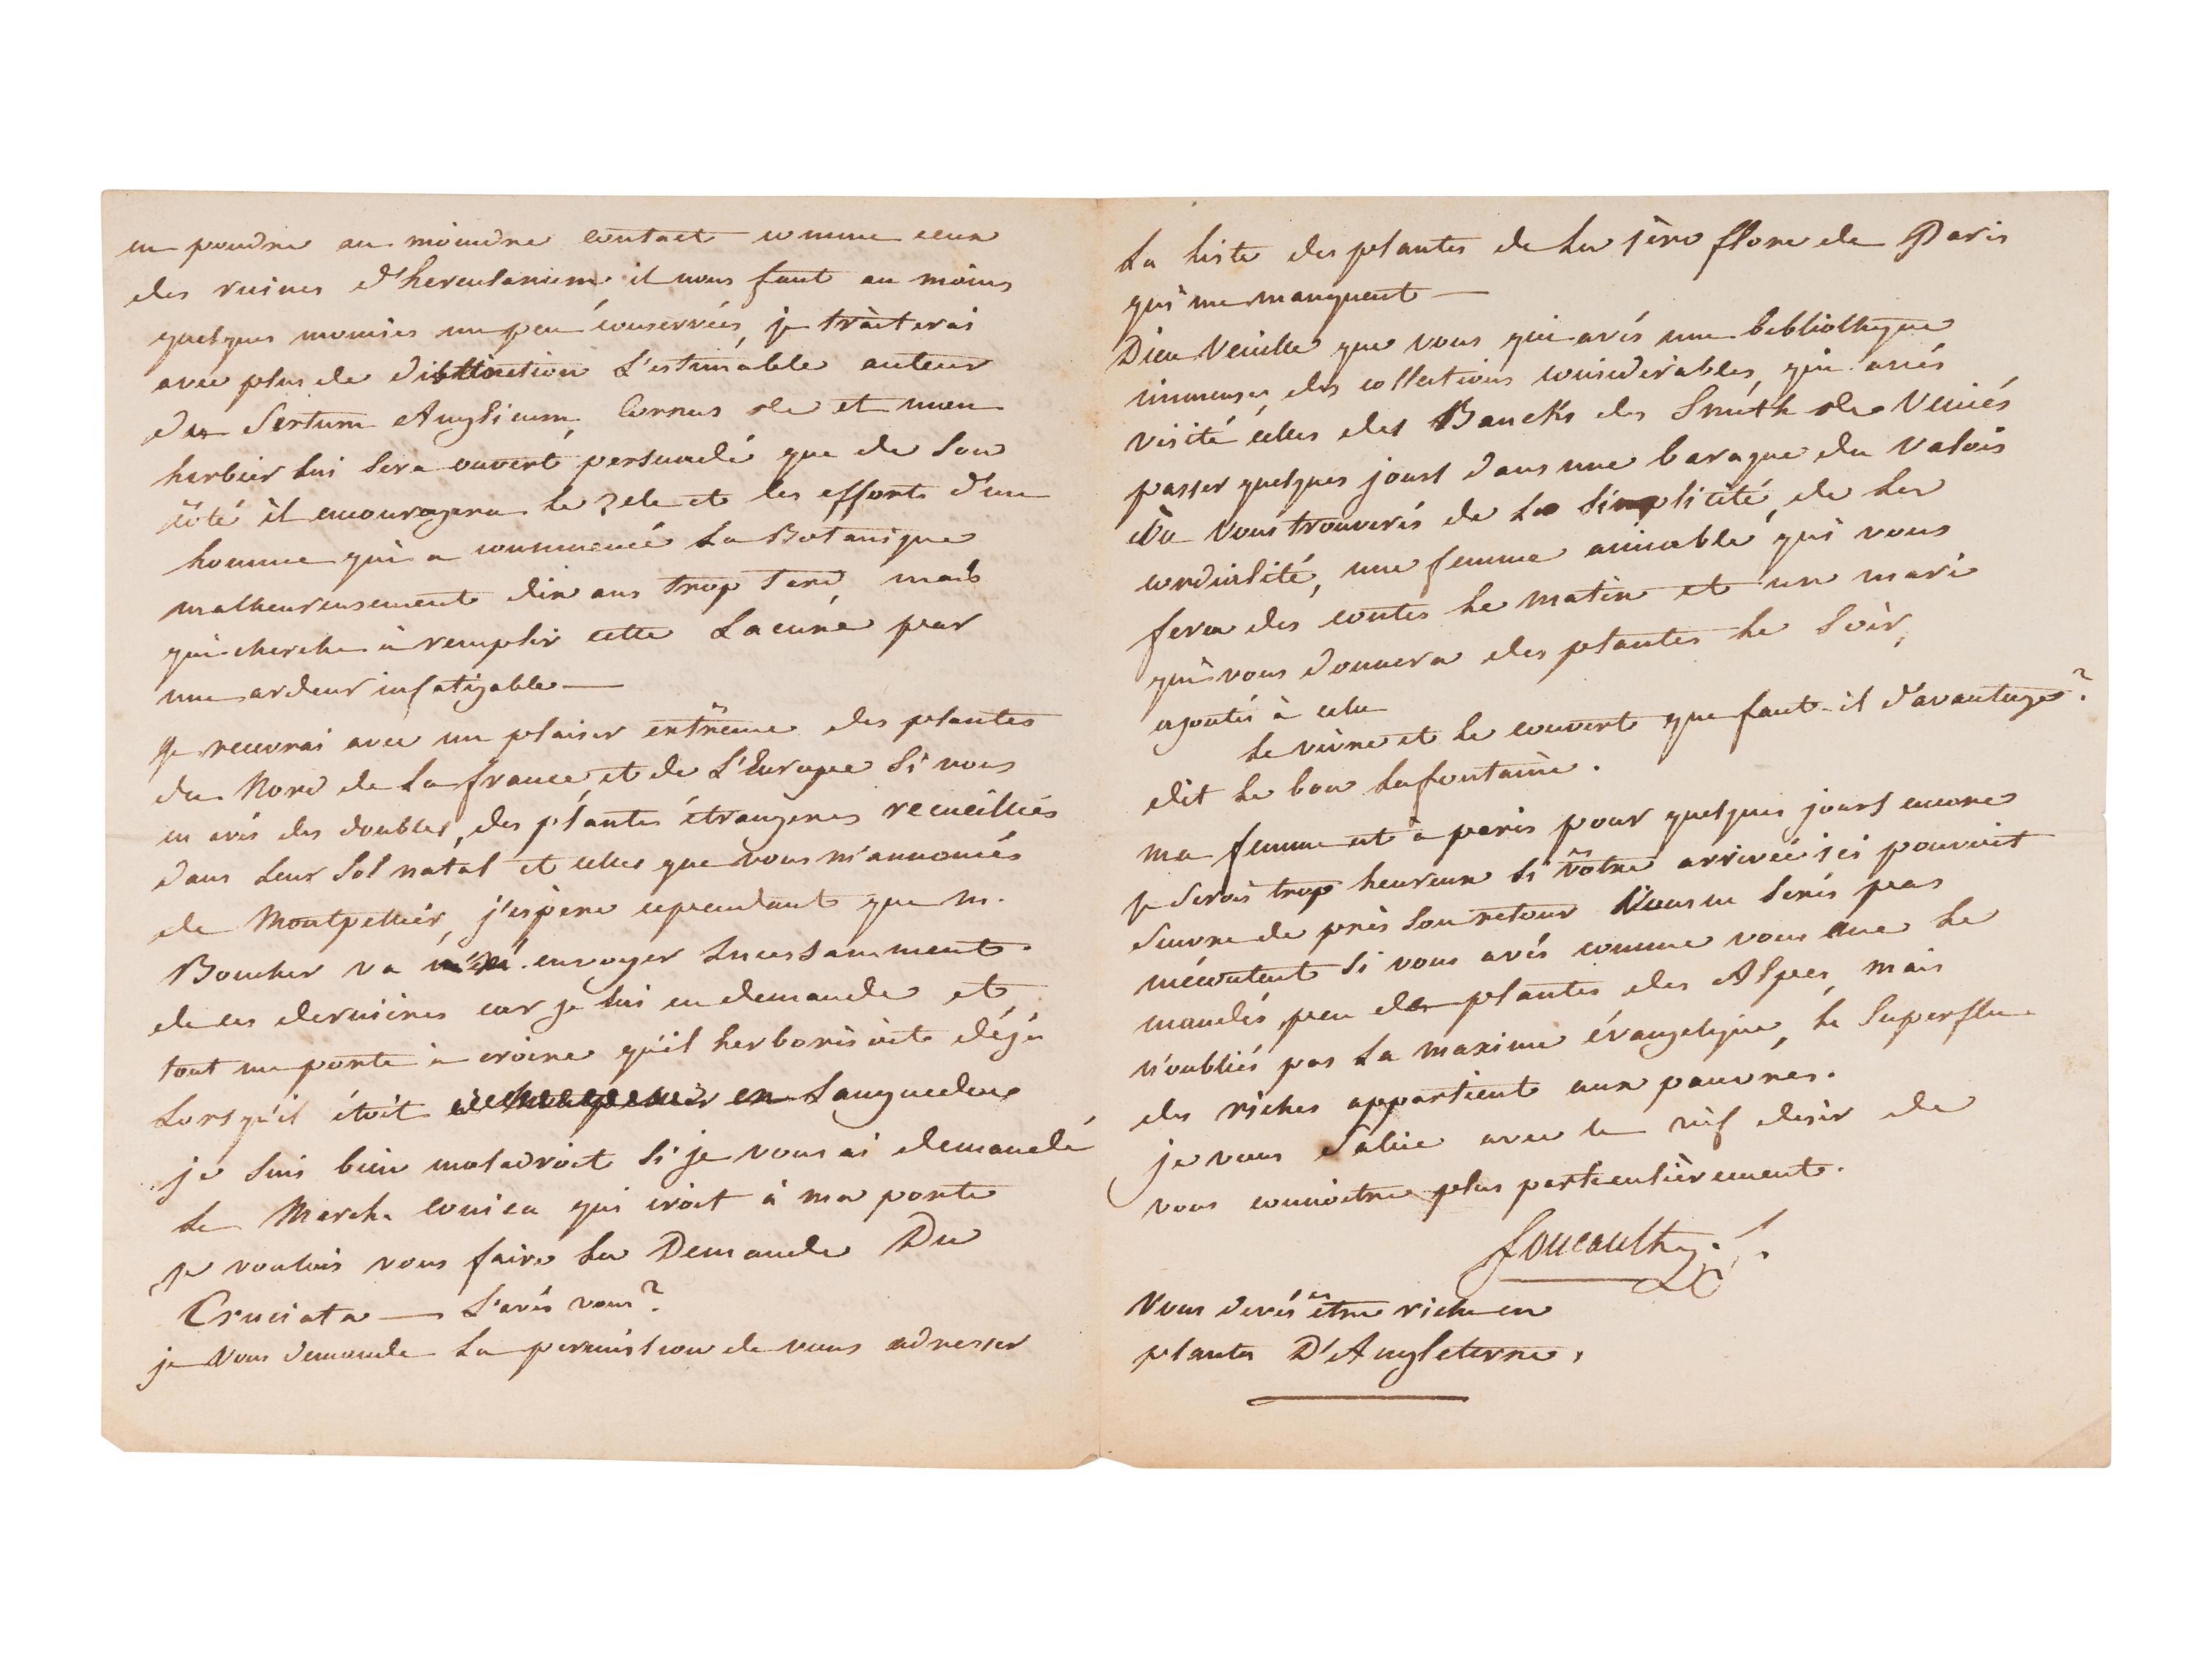 en poudre au moindre contact comme ceux
des ruines d'herculanium, il nous faut au moins
quelques momies un peu conservées, je traiterai
avec plus de distinction L'estimable auteur
du Sertum Anglicum, Cornus &c et mon
herbier lui sera ouvert persuadé que de son
côté il encouragera le zele et les efforts d'un
homme qui a commencé La Botanique
malheureusement dix ans trop tard, mais
qui cherche à remplir cette Lacune par
une ardeur infatigable —
je recevrai avec un plaisir extrême des plantes
du Nord de La france, et de L'Europe si vous
en avés des doubles, des plantes étrangeres recueillies
dans Leur Sol natal et celles que vous m'annoncés
de Montpellier, j'espere cependant que M.
Boucher va m'en envoyer incessamment
de ces dernieres car je lui en demande et
tout me porte à croire qu'il herborisoit déjà
Lorsqu'il étoit en Languedoc
je suis bien maladroit si je vous ai demandé
Le March. conica qui croit à ma porte
je voulois vous faire La Demande Du
Cruciata — L'avés vous?
je vous demande La permission de vous adresser
La Liste des plantes de La 1ere flore de Paris
qui me manquent —
Dieu Veuille que vous qui avés une bibliotheque
immense, des collections considerables, qui avés
visité celles des Bancks des Smith &c Veniés
passer quelques jours dans une baraque du Valois
où Vous trouverés de La simplicité, de La
cordialité, une femme aimable qui vous
fera des contes Le matin et un mari
qui vous donnera des plantes Le Soir,
ajoutés à cela
Le vivre et Le couvert que faut-il d'avantage?
dit Le bon Lafontaine.
ma femme est à paris pour quelques jours encore
je Serois trop heureux si vôtre arrivée ici pouvoit
Suivre de près Son retour Vous ne Serés pas
mécontent si vous avés comme vous me Le
mandés peu de plantes des Alpes, mais
n'oubliés pas La maxime évangelique, Le Superflu
des riches appartient aux pauvres.
je vous Salue avec Le vif desir de
vous connoître plus particulièrement.
foucault
Vous devés être riche en
plantes D'Angleterre.